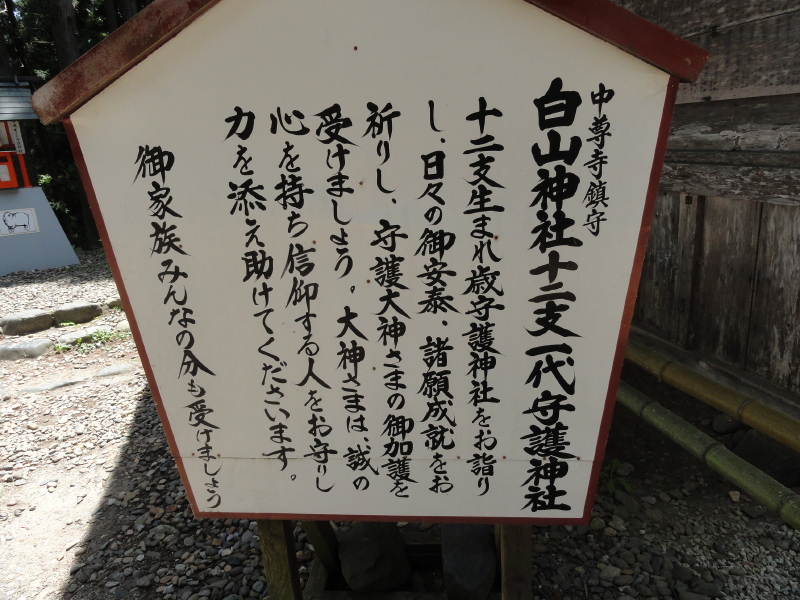 中尊寺鎮守
白山神社十二支一代守護神社
十二支生まれ歳守護神社をお詣り
し、日々の御安泰、諸願成就をお
祈りし、守護大神さまの御加護を
受けましょう。大神さまは、誠の
心を持ち信仰する人をお守りし
力を添え助けてくださいます。
御家族みんなの分も受けましょう